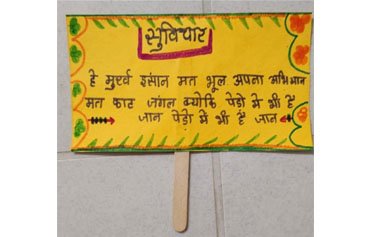 सुविचार
हे मुर्ख इंसान मत भूल अपना अभिमान
मत काट जंगल क्योकि पेडो मे भी हैं
जान पेडो मे भी हैं जान